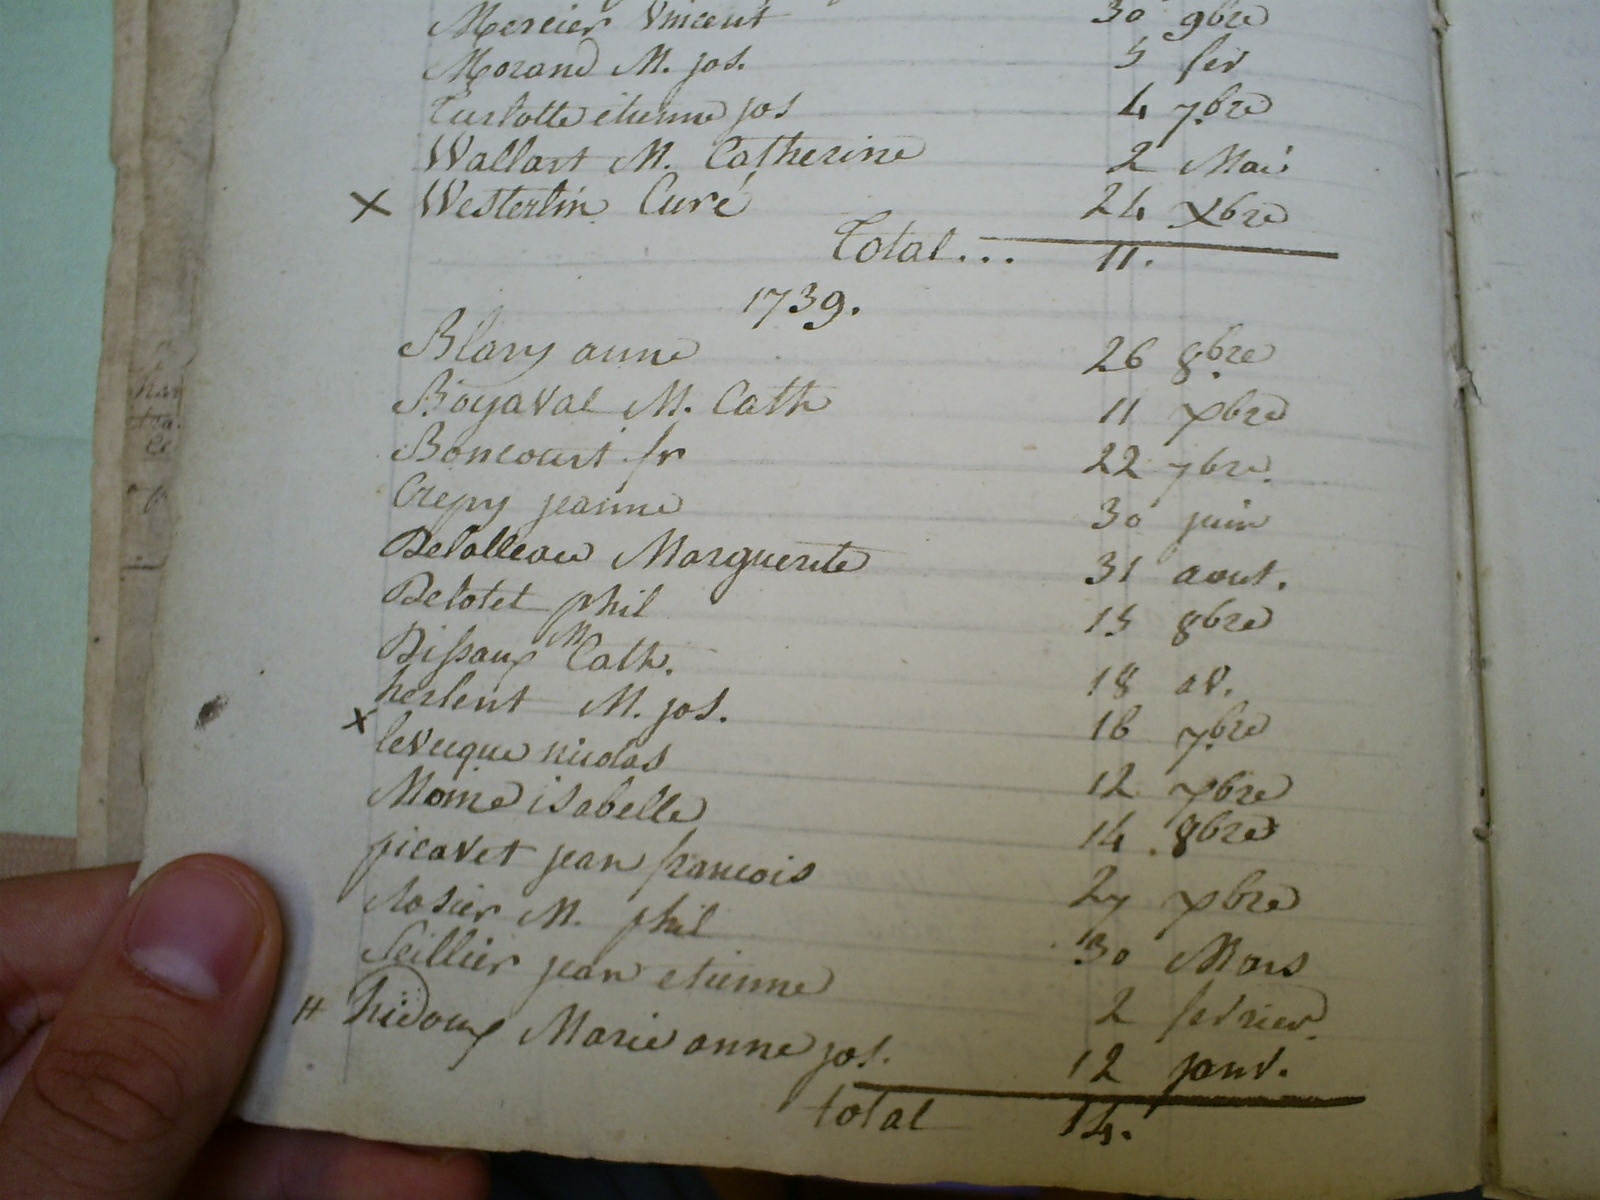 Mercier Vincent 30 9bre
Morand M. jos. 5 fev
Turlotte etienne jos 4 7bre
Wallart M. Catherine 2 Mai
x Westerlin Curé 24 xbre
Total... 11.
1739.
Blary anne 26 8bre
Boyaval M. Cath 11 xbre
Boncourt fr 22 7bre.
Crepy jeanne 30 juin
Delalleau Marguerite 31 aout.
Delotel phil 15 8bre
Dissaux M Cath. 18 av.
herlent M. jos. 16 7bre
x leveque nicolas 12 xbre
Moine isabelle 14 8bre
picavet jean francois 27 xbre
Rosier M. phil 30 Mars
Seillier jean etienne 2 fevrier
H hidoux Marie anne jos. 12 janv.
total 14.